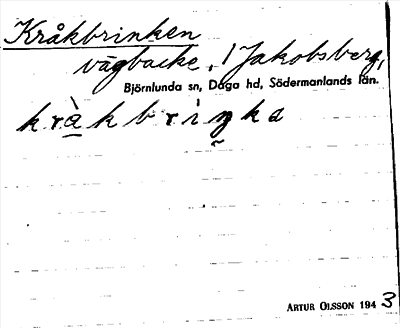 Kråkbrinken
vägbacke, i Jakobsberg,
Björnlunda sn, Daga hd, Södermanlands län.
kràkbriŋka
ARTUR OLSSON 1943